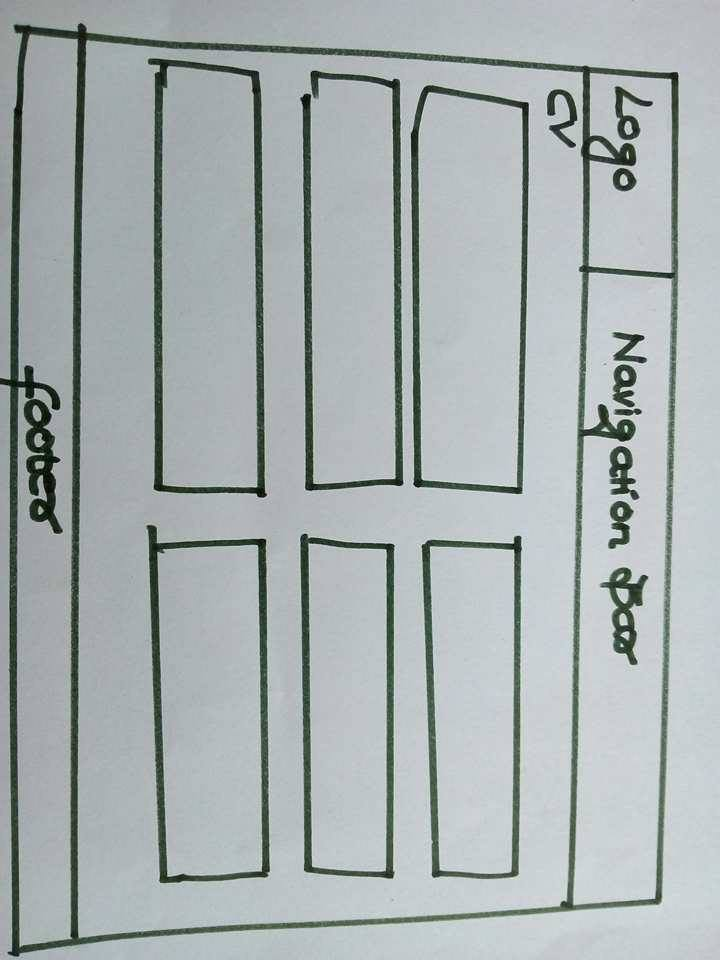 Logo
Navigation Bar
CV
footer